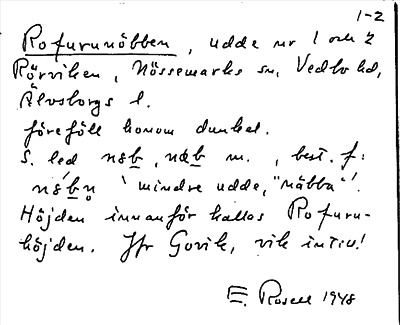 1-2
Rofurunäbben, udde nr 1 och 2
Rörviken, Nössemarks sn, Vedbo hd,
Älvsborgs l.
föreföll honom dunkel.
S. led nɛb, nɑb m., best. f:
nɛ́bn̥ 'mindre udde, "näbba"'.
Höjden innanför kallas Rofuru-
höjden. Jfr Gorvik, vik intill!
E. Rosell 1948